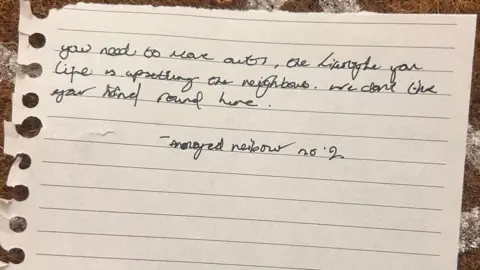 you need to move out, the lifestyle you
life is upsetting the neighbous. we dont like
your kind round here.
- annoyed neibour no 2